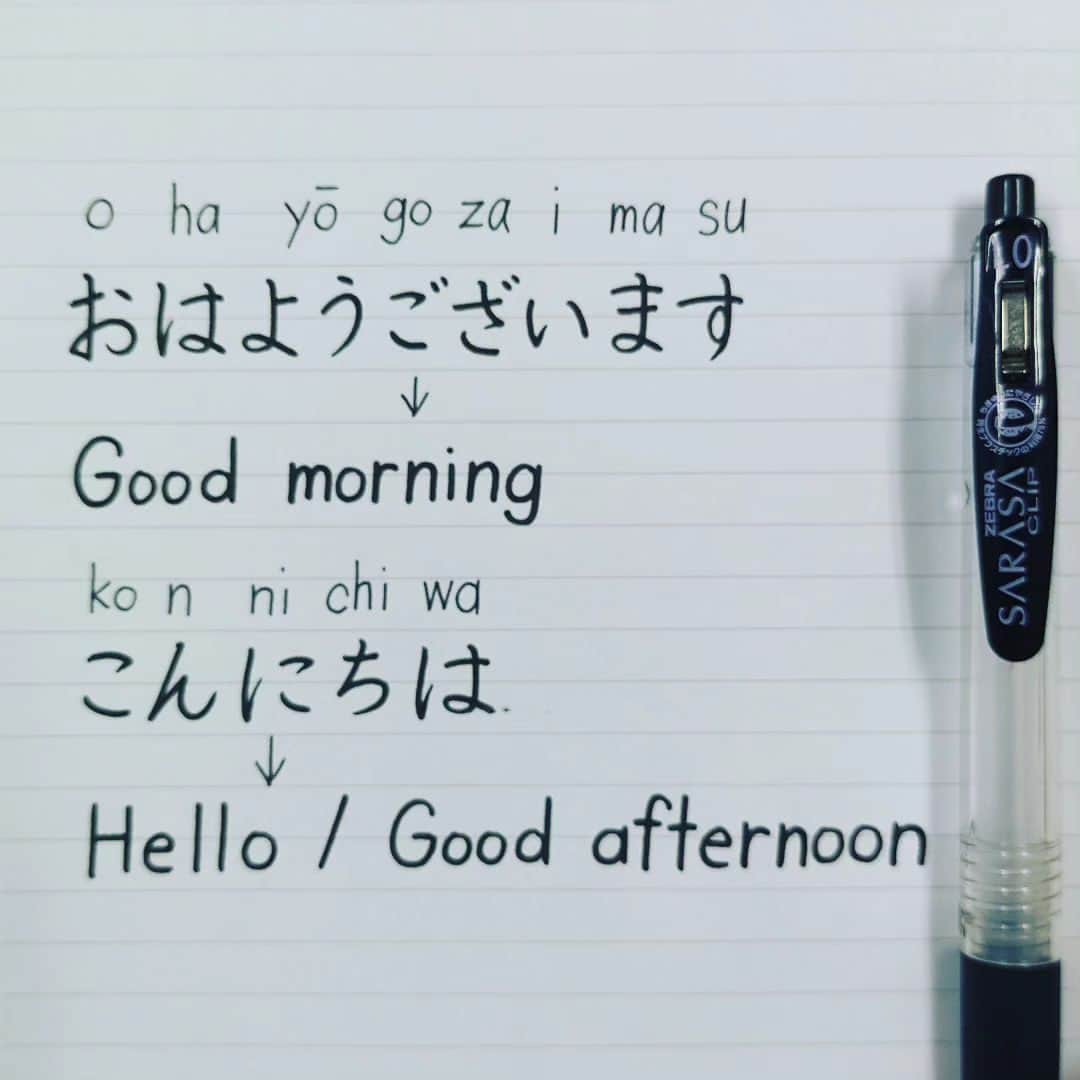 o ha yō go za i ma su
おはようございます
↓
Good morning
ko n ni chi wa
こんにちは
↓
Hello / Good afternoon
1.0
ZEBRA
SARASA
CLIP